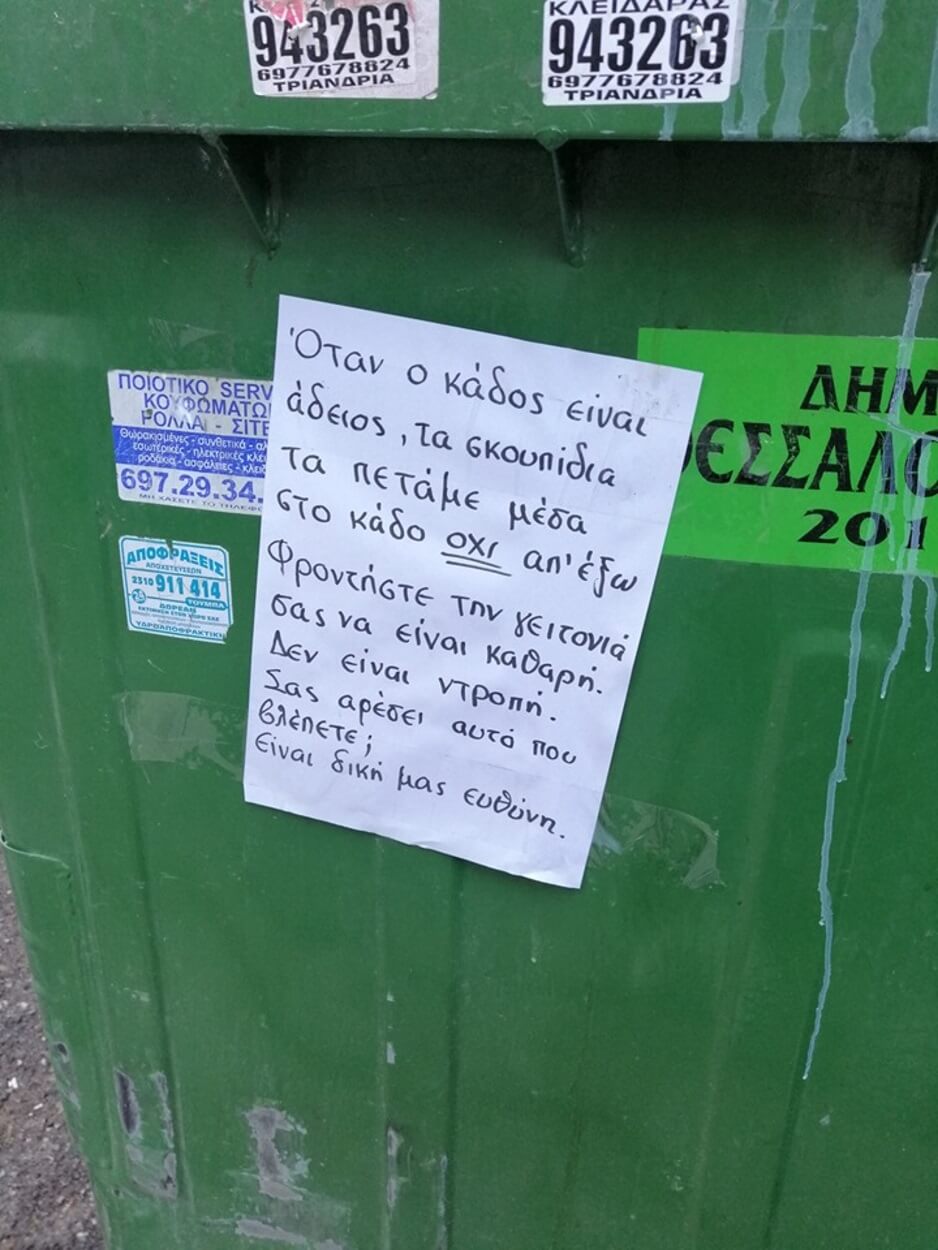 943263
6977678824
ΤΡΙΑΝΔΡΙΑ
ΚΛΕΙΔΑΡΑΣ
943263
6977678824
ΤΡΙΑΝΔΡΙΑ
Όταν ο κάδος είναι
άδειος, τα σκουπίδια
τα πετάμε μέσα
στο κάδο οχι απ' έξω
Φροντήστε την γειτονιά
σας να είναι καθαρή.
Δεν είναι ντροπή.
Σας αρέσει αυτό που
βλέπετε;
είναι δική μας ευθύνη.
ΠΟΙΟΤΙΚΟ SERV
ΚΟΥΦΩΜΑΤΩ
ΡΟΛΛΑ - ΣΙΤΕ
Θωρακισμένες - συνθετικά - αλ
εσωτερικές - ηλεκτρικές κλει
ροδάκια - ασφάλειες - κλειδ
697.29.34.
ΜΗ ΧΑΣΕΤΕ ΤΟ ΤΗΛΕΦΩ
ΑΠΟΦΡΑΞΕΙΣ
ΑΠΟΧΕΤΕΥΣΕΩΝ
2310 911 414
ΤΟΥΜΠΑ
ΔΩΡΕΑΝ
ΕΚΤΙΜΗΣΗ ΣΤΟΝ ΧΩΡΟ ΣΑΣ
ΥΔΡΟΑΠΟΦΡΑΚΤΙΚΗ
ΔΗΜ
ΘΕΣΣΑΛΟ
201